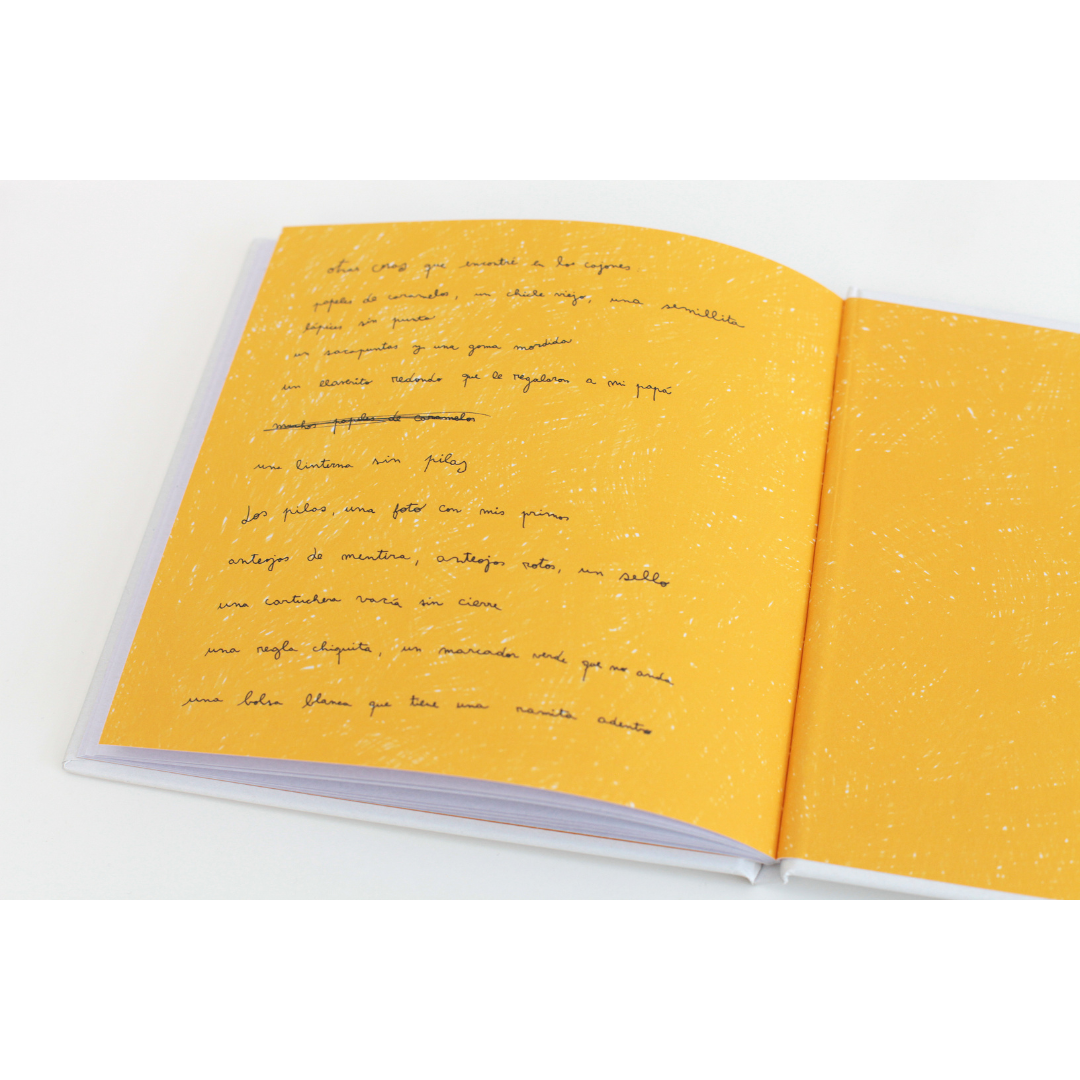 otras cosas que encontré en los cajones
papeles de caramelos, un chicle viejo, una semillita
lápices sin punta
un sacapuntas y una goma mordida
un llaverito redondo que le regalaron a mi papá
muchos papeles de caramelos
una linterna sin pilas
Las pilas, una foto con mis primos
anteojos de mentira, anteojos rotos, un sello
una cartuchera vacía sin cierre
una regla chiquita, un marcador verde que no anda
una bolsa blanca que tiene una ramita adentro